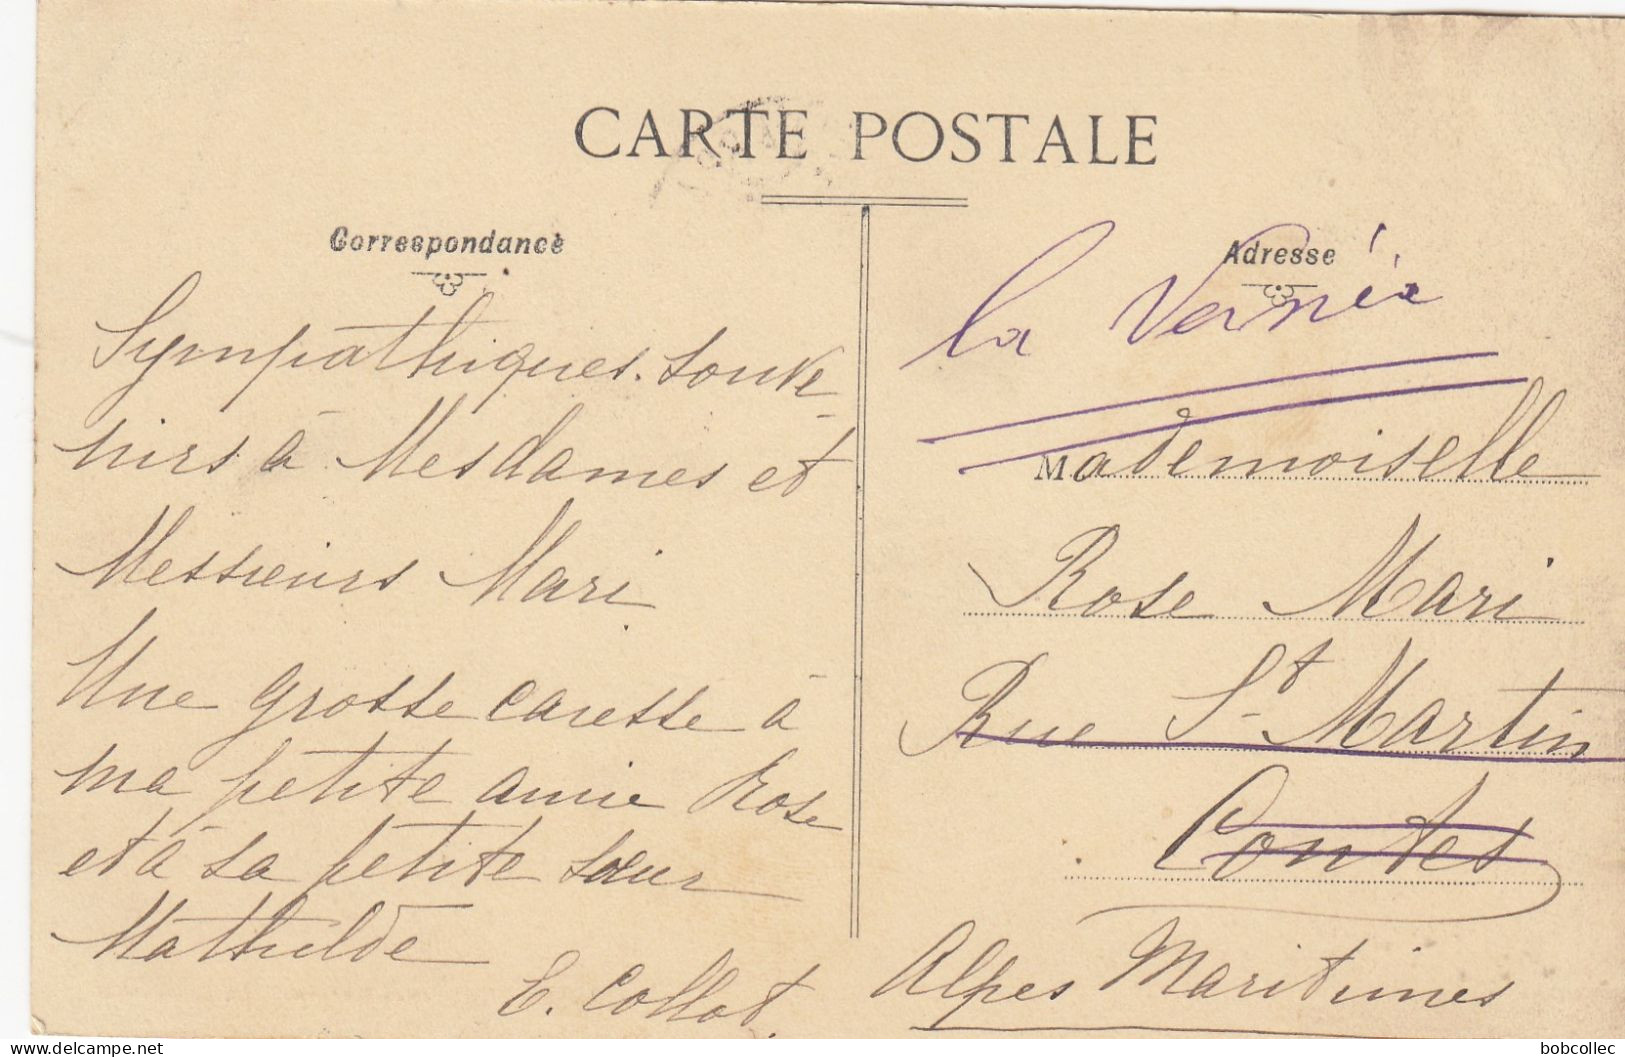 CARTE POSTALE
Correspondance
Sympathiques souve-
nirs à Mesdames et
Messieurs Mari
Une grosse caresse à
ma petite amie Rose
et à sa petite sœur
Mathilde
E. Collot.
Adresse
la Vernéa
Mademoiselle
Rose Mari
Rue St Martin
Contes
Alpes Maritimes
bobcollec